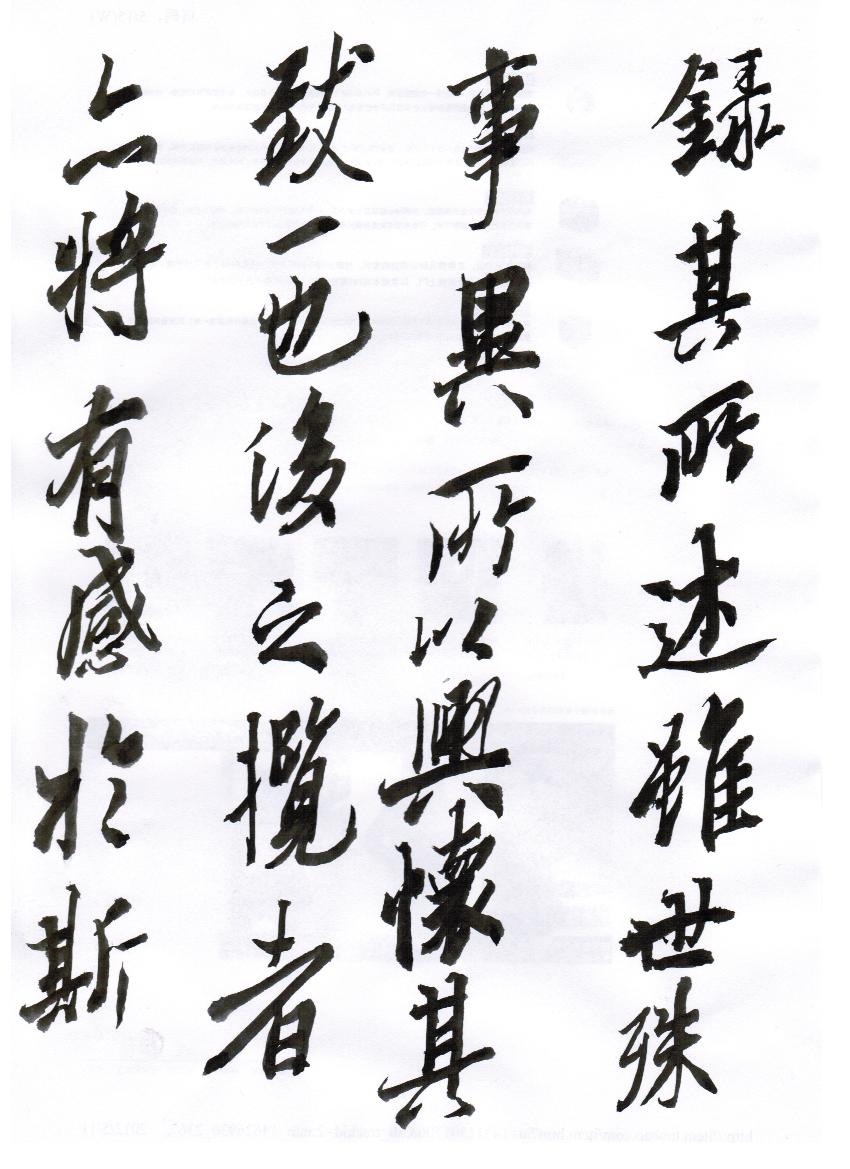 錄其所述雖世殊
事異所以興懷其
致一也後之攬者
亦將有感於斯